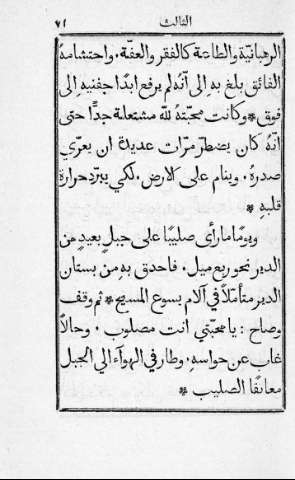 الثالث ٧١
الرهبانيّة والطاعة كالفقر والعفّة. واحتشامهُ
الفائق بلغ بهِ الى انّه لم يرفع ابدًا جفنيهِ الى
فوق * وكانت محبّتهُ للّه مشتعلة جدًا حتى
انّهُ كان يضطرّ مرّات عديدة ان يعرّي
صدرهُ. وينام على الارض. لكي يبرّد حرارة
قلبهِ *
ويومًا ما رأى صليبًا على جبلٍ بعيدٍ من
الدير نحو ربع ميل. فاحدق بهِ من بستان
الدير متأمّلًا في آلام يسوع المسيح * ثم وقف
وصاح: يا محبّتي انت مصلوب. وحالًا
غاب عن حواسهِ. وطار في الهوآء الى الجبل
معانقًا الصليب *